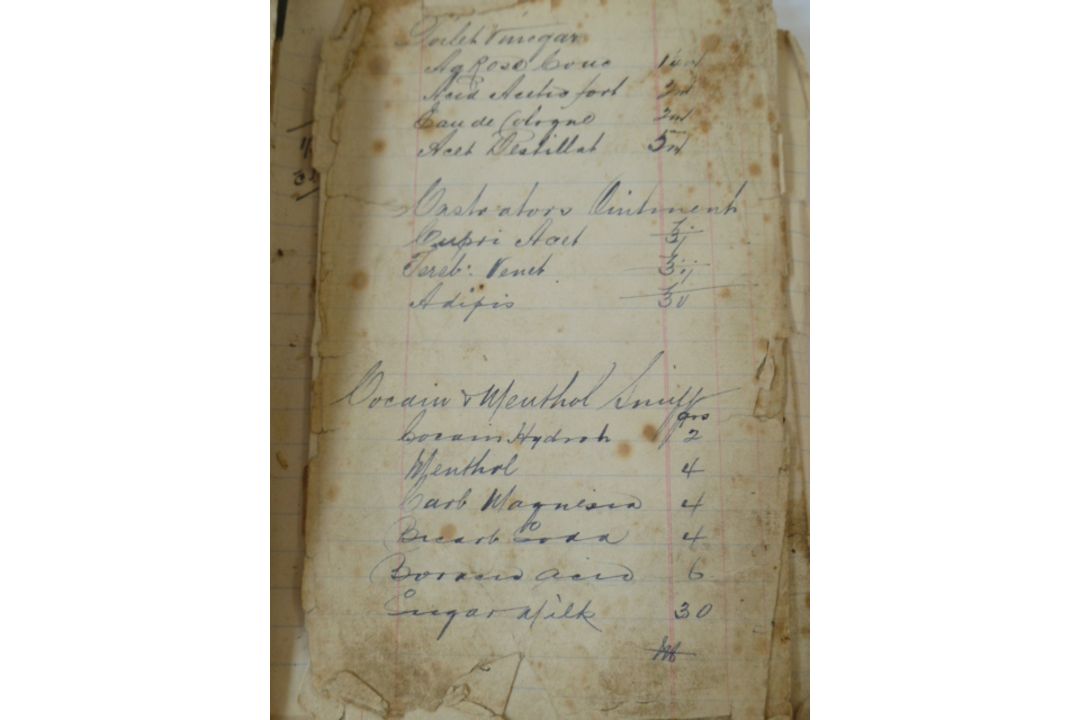 Toilet Vinegar
Aq Rose Conc
Acid Acetic fort
Eau de Cologne
Acet Destillat
Castrators Ointment
Cupri Acet ʒj
Tereb. Venet ʒij
Adipis
Cocain & Menthol Snuff
grs
Cocain Hydroch 2
Menthol 4
Carb Magnesia 4
Bicarb Soda 4
Boracic Acid 6
Sugar Milk 30
M